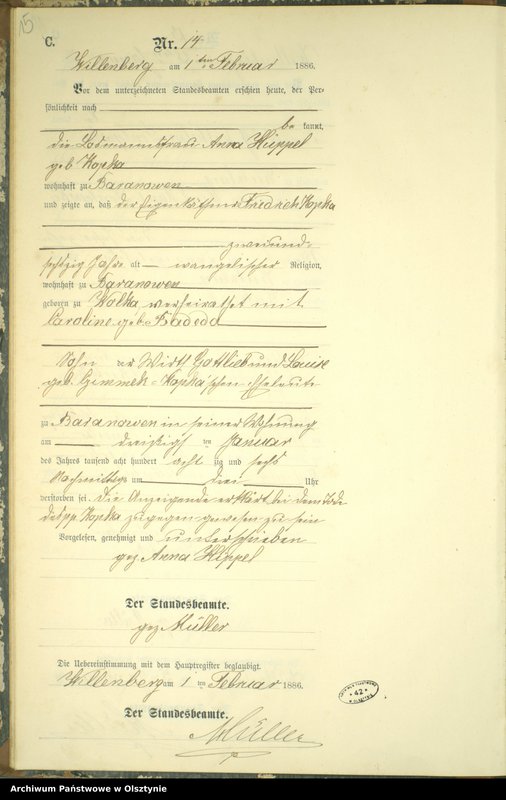 15
C.
Nr. 14
Willenberg am 1ten Februar 1886.
Vor dem unterzeichneten Standesbeamten erschien heute, der Per-
sönlichkeit nach
be kannt,
die Losmannsfrau Anna Hüppel
geb Kopka
wohnhaft zu Baranowen
und zeigte an, daß der Eigenkäthner Friedrich Kopka
zweiund-
sechszig Jahre alt evangelischer Religion,
wohnhaft zu Baranowen
geboren zu Wolka verheirathet mit
Caroline geb.
Sohn der Wirth Gottlieb und Louise
geb. Kopka'schen Eheleute
zu Baranowen in seiner Wohnung
am dreißigsten Januar
des Jahres tausend acht hundert acht zig und sechs
Nachmittags um drei Uhr
verstorben sei. Die Anzeigende erklärt bei dem Tode
des pp. Kopka zugegen gewesen zu sein
Vorgelesen, genehmigt und unterschrieben
gez Anna Hüppel
Der Standesbeamte.
gez Müller
Die Uebereinstimmung mit dem Hauptregister beglaubigt.
Willenberg am 1 ten Februar 1886.
Der Standesbeamte.
Müller
42
Archiwum Państwowe w Olsztynie